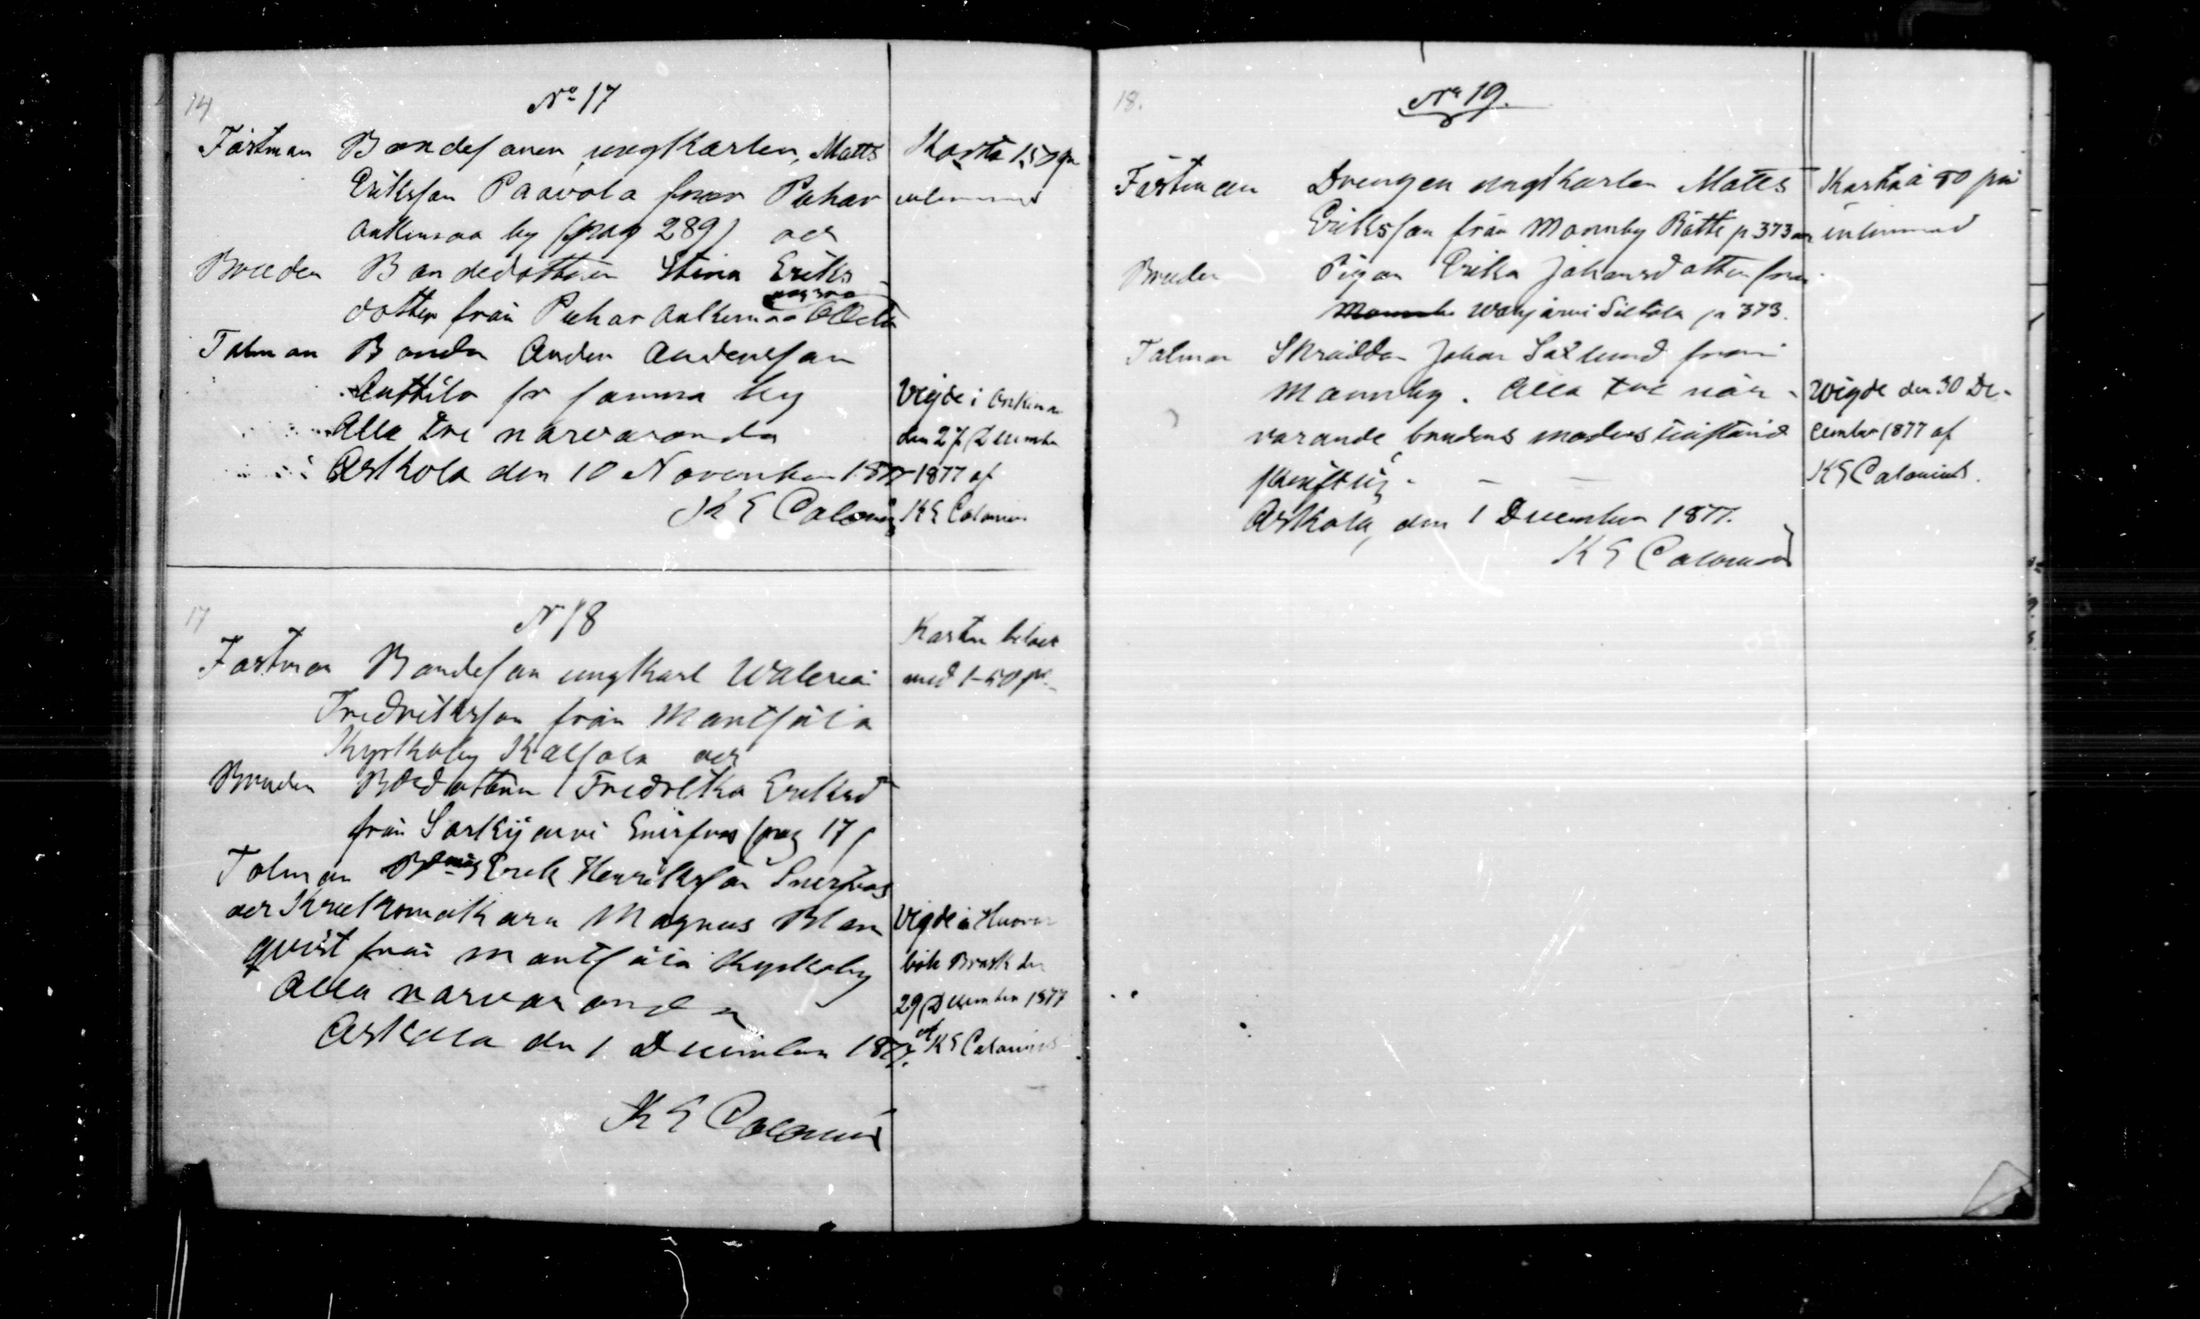 14
No 17
Fästman Bondesonen, ungkarlen, Matts
Eriksson Paavola från Puhar
Onkimaa by (pag 289) och
Bruden Bondedottern Stina Eriks
dotter från Puhar Onkimaa
Talman Bonden Anders Andersson
Anttila fr samma by
Alla tre närvarande
Askola den 10 November 1877
K E Calonius
Karta 150 pn
inlemnad
Vigde i Onkima
den 27 December
1877 af
K E Calonius
17
N 18
Fästman Bondeson ungkarl Walerian
Fredriksson från Mäntsälä
Kyrkoby och
Bruden Bdedottern Fredrika Eriksd
från Särkijärvi (pag 17)
Talman Erik Henriksson
och Krukomakaren Magnus Blom
qvist från Mäntsälä Kyrkoby
Alla närvarande
Askola den 1 December 1877.
K E Calonius
Kartan
med 1-50 pn
Vigde i
den
29 December 1877
af K E Calonius
18.
No 19.
Fästman Drengen ungkarlen Matts
Eriksson från Monnby Rätti p 373 och
Bruden Pigan Erika Johansdotter från
Wahijärvi Siltala p 373.
Talman Skräddar Johan Saxlund från
Monnby. Alla tre när-
varande, brudens moders tillstånd
skriftlig.
Askola, den 1 December 1877.
K E Calonius
Karta à 80 pn
inlemnad
Wigde den 30 De-
cember 1877 af
K E Calonius.